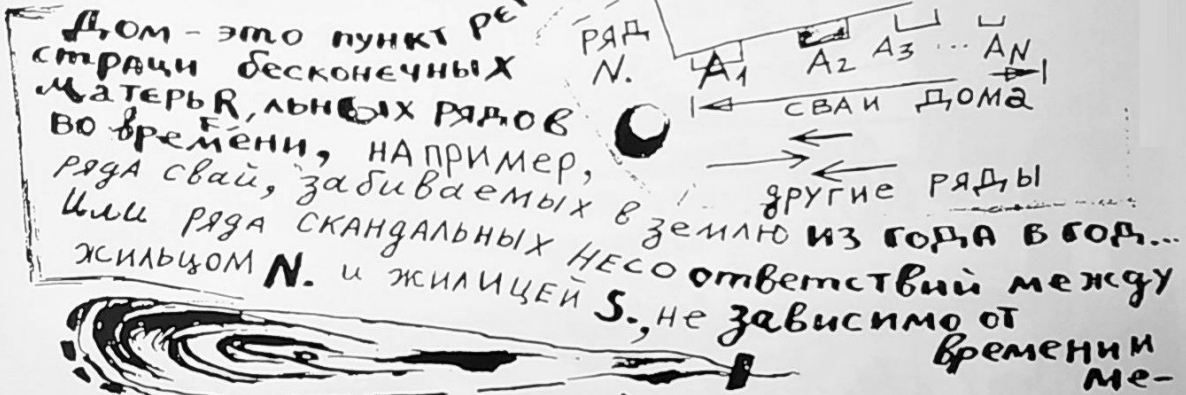 Дом - это пункт РЕ
страци бесконечных
матерьЯ, льных рядов
во времени, например,
ряда свай, забиваемых в землю из года в год...
Или ряда скандальных несоответствий между
жильцом N. и жилицей S., не зависимо от
времени и
ме-
РЯД
N.
A1 A2 A3 ... AN
СВАИ ДОМА
другие ряды